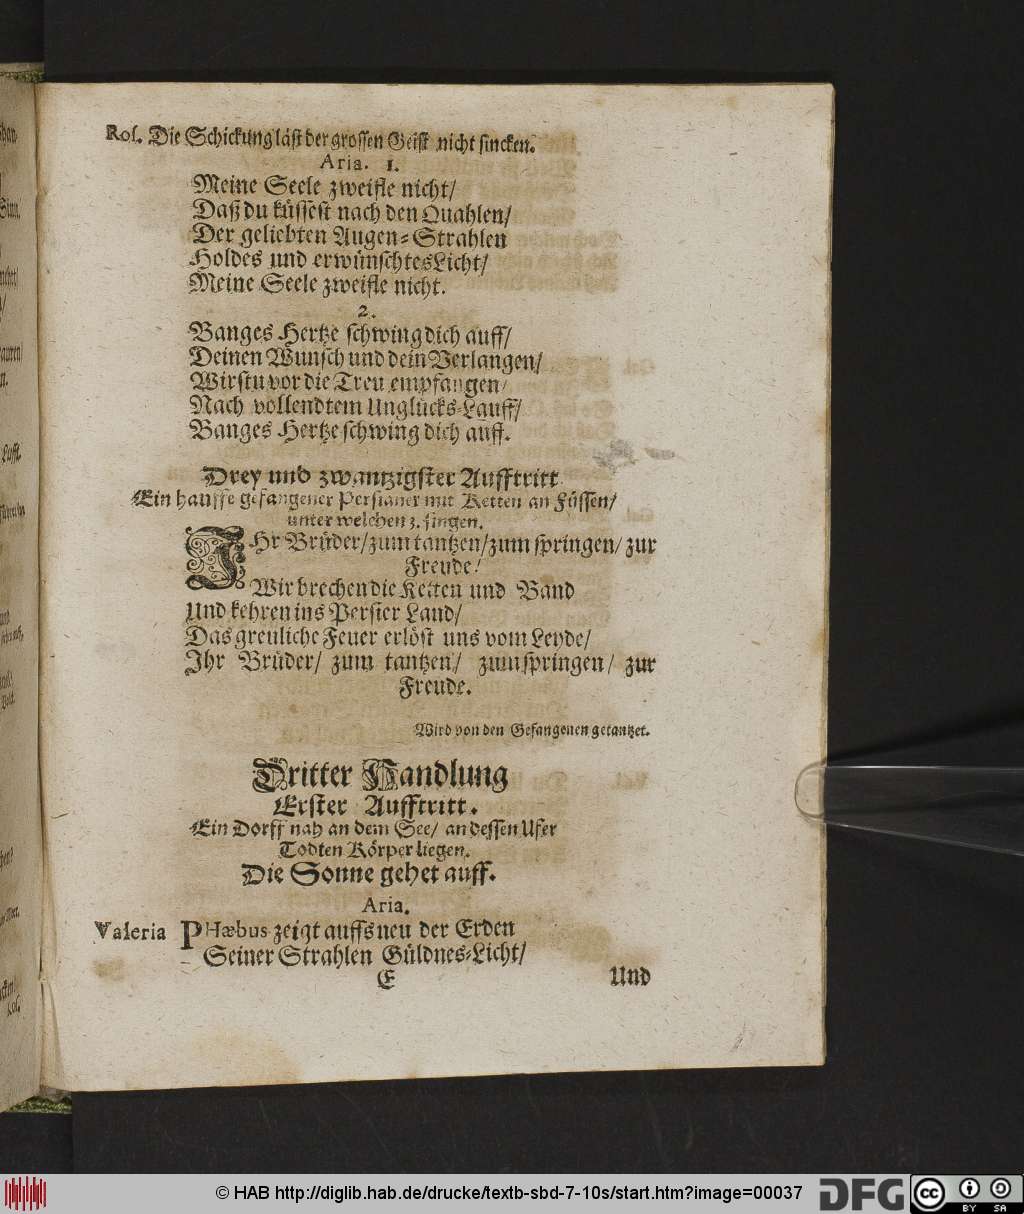 Ros. Die Schickung läst der grossen Geist nicht sincken.
Aria. 1.
Meine Seele zweifle nicht/
Daß du küssest nach den Quahlen/
Der geliebten Augen-Strahlen
Holdes und erwünschtes Licht/
Meine Seele zweifle nicht.
2.
Banges Hertze schwing dich auff/
Deinen Wunsch und dein Verlangen/
Wirstu vor die Treu empfangen/
Nach vollendtem Unglücks-Lauff/
Banges Hertze schwing dich auff.
Drey und zwantzigster Aufftritt
Ein hauffe gefangener Persianer mit Ketten an Füssen/
unter welchen 3. singen.
IHr Brüder/zum tantzen/zum springen/ zur
Freude/
Wir brechen die Ketten und Band
Und kehren ins Persier Land/
Das greuliche Feuer erlöst uns vom Leyde/
Ihr Brüder/ zum tantzen/ zum springen/ zur
Freude.
Wird von den Gefangenen getantzet.
Dritter Handlung
Erster Aufftritt.
Ein Dorff nah an dem See/ an dessen Ufer
Todten Körper liegen.
Die Sonne gehet auff.
Aria.
Valeria PHæbus zeigt auffs neu der Erden
Seiner Strahlen Güldnes-Licht/
E Und
© HAB http://diglib.hab.de/drucke/textb-sbd-7-10s/start.htm?image=00037 DFG cc BY SA